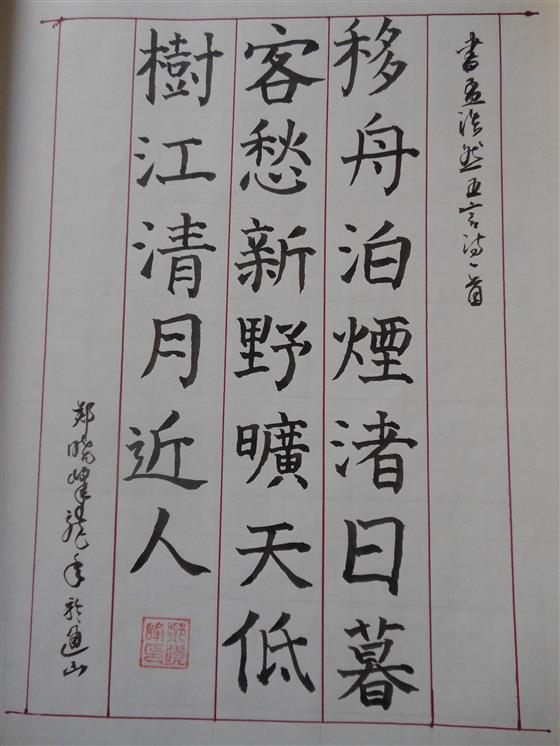 书孟浩然五言诗一首
移舟泊煙渚日暮
客愁新野曠天低
樹江清月近人
郑晓峰龙年於通山